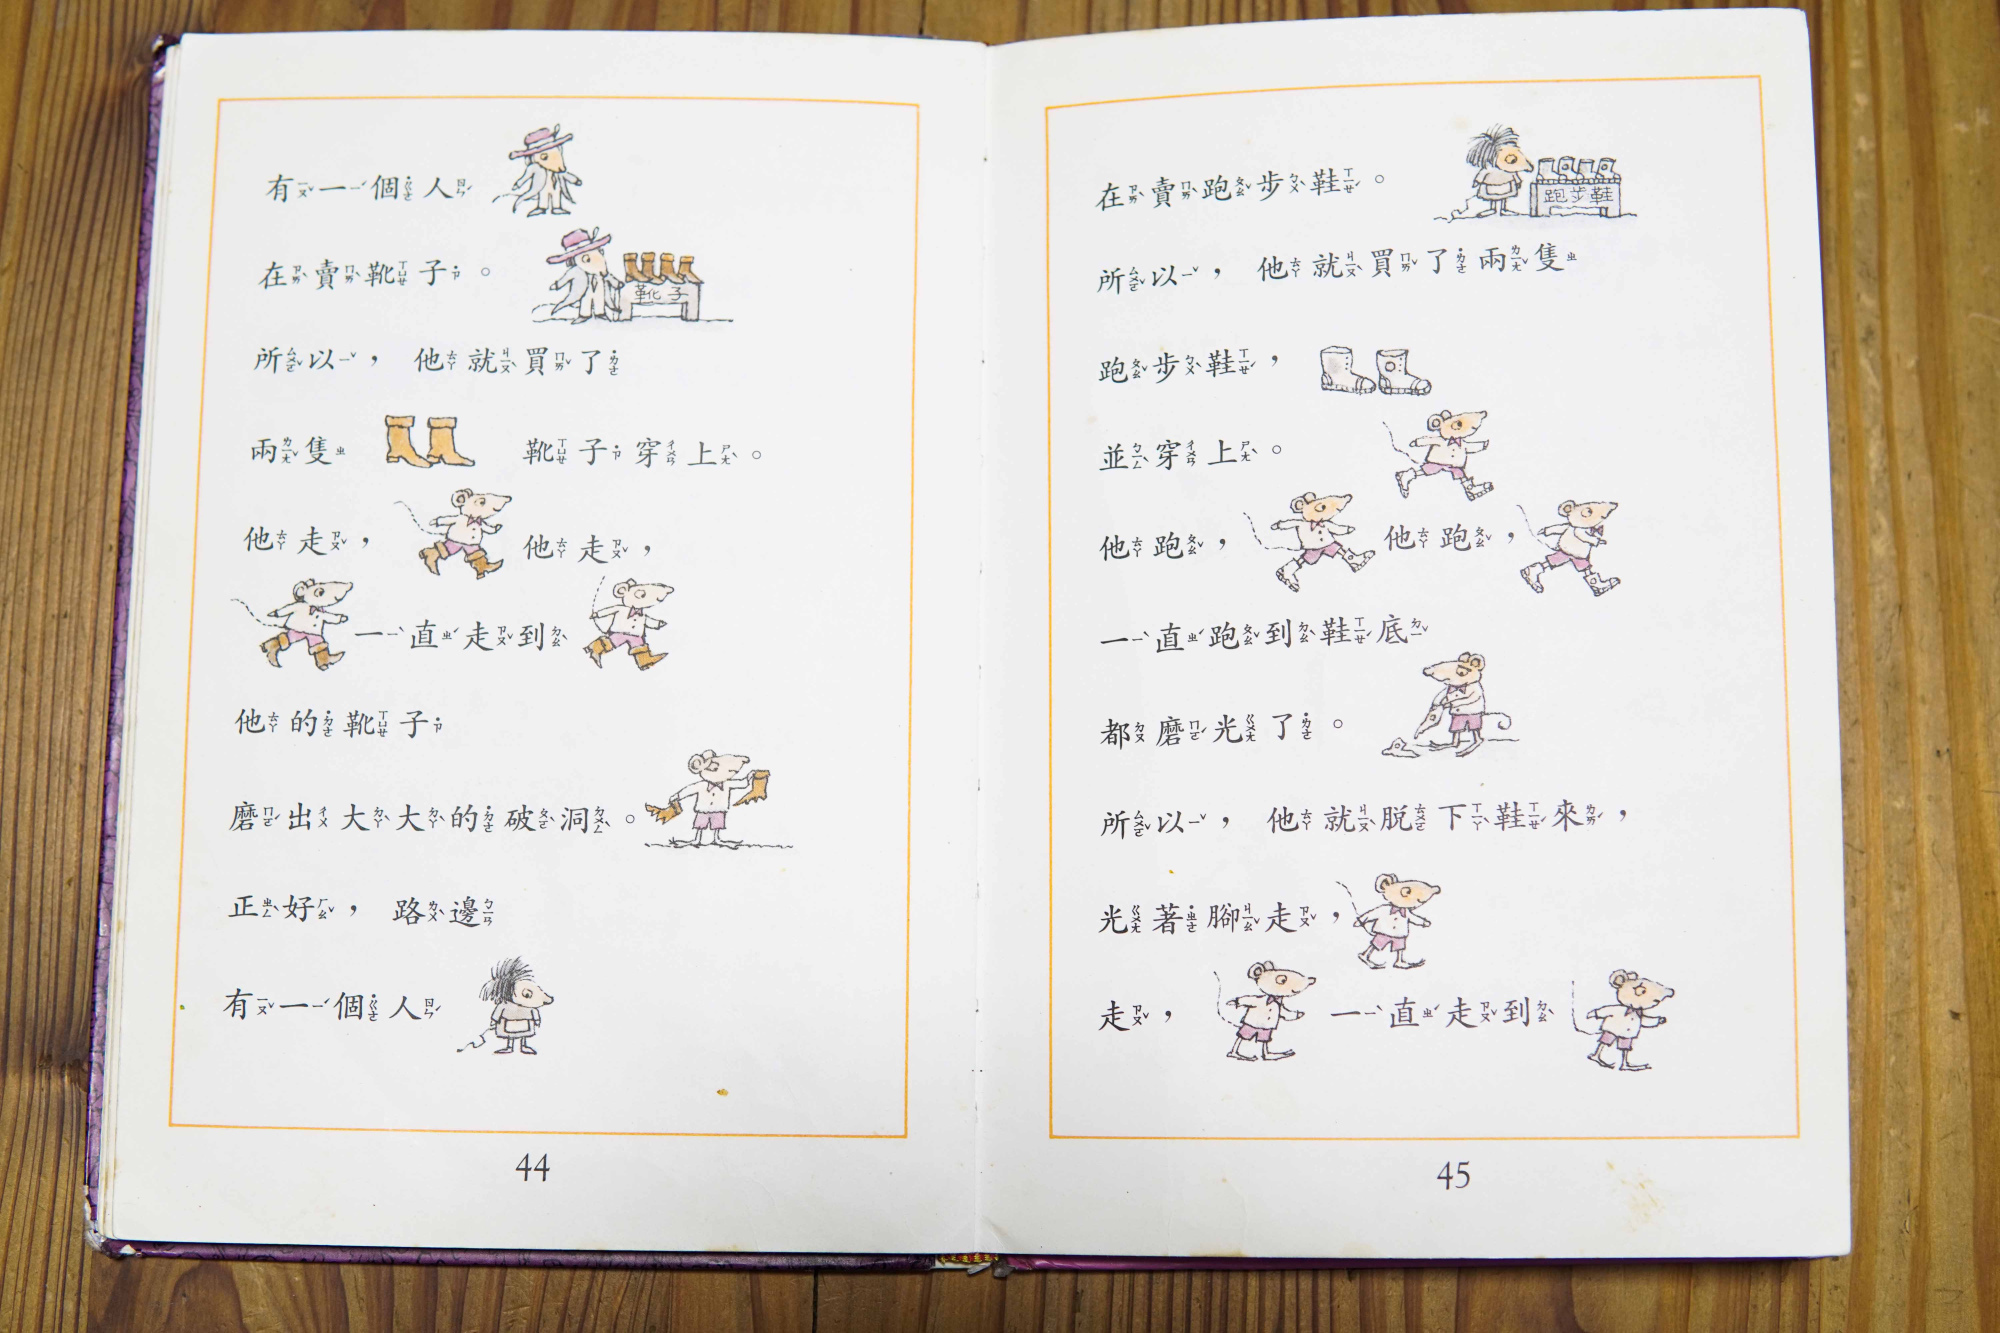 有一個人
在賣靴子。
靴子
所以，他就買了
兩隻 靴子穿上。
他走，他走，
一直走到
他的靴子
磨出大大的破洞。
正好，路邊
有一個人
44
在賣跑步鞋。
跑步鞋
所以，他就買了兩隻
跑步鞋，
並穿上。
他跑，他跑，
一直跑到鞋底
都磨光了。
所以，他就脫下鞋來，
光著腳走，
走，一直走到
45